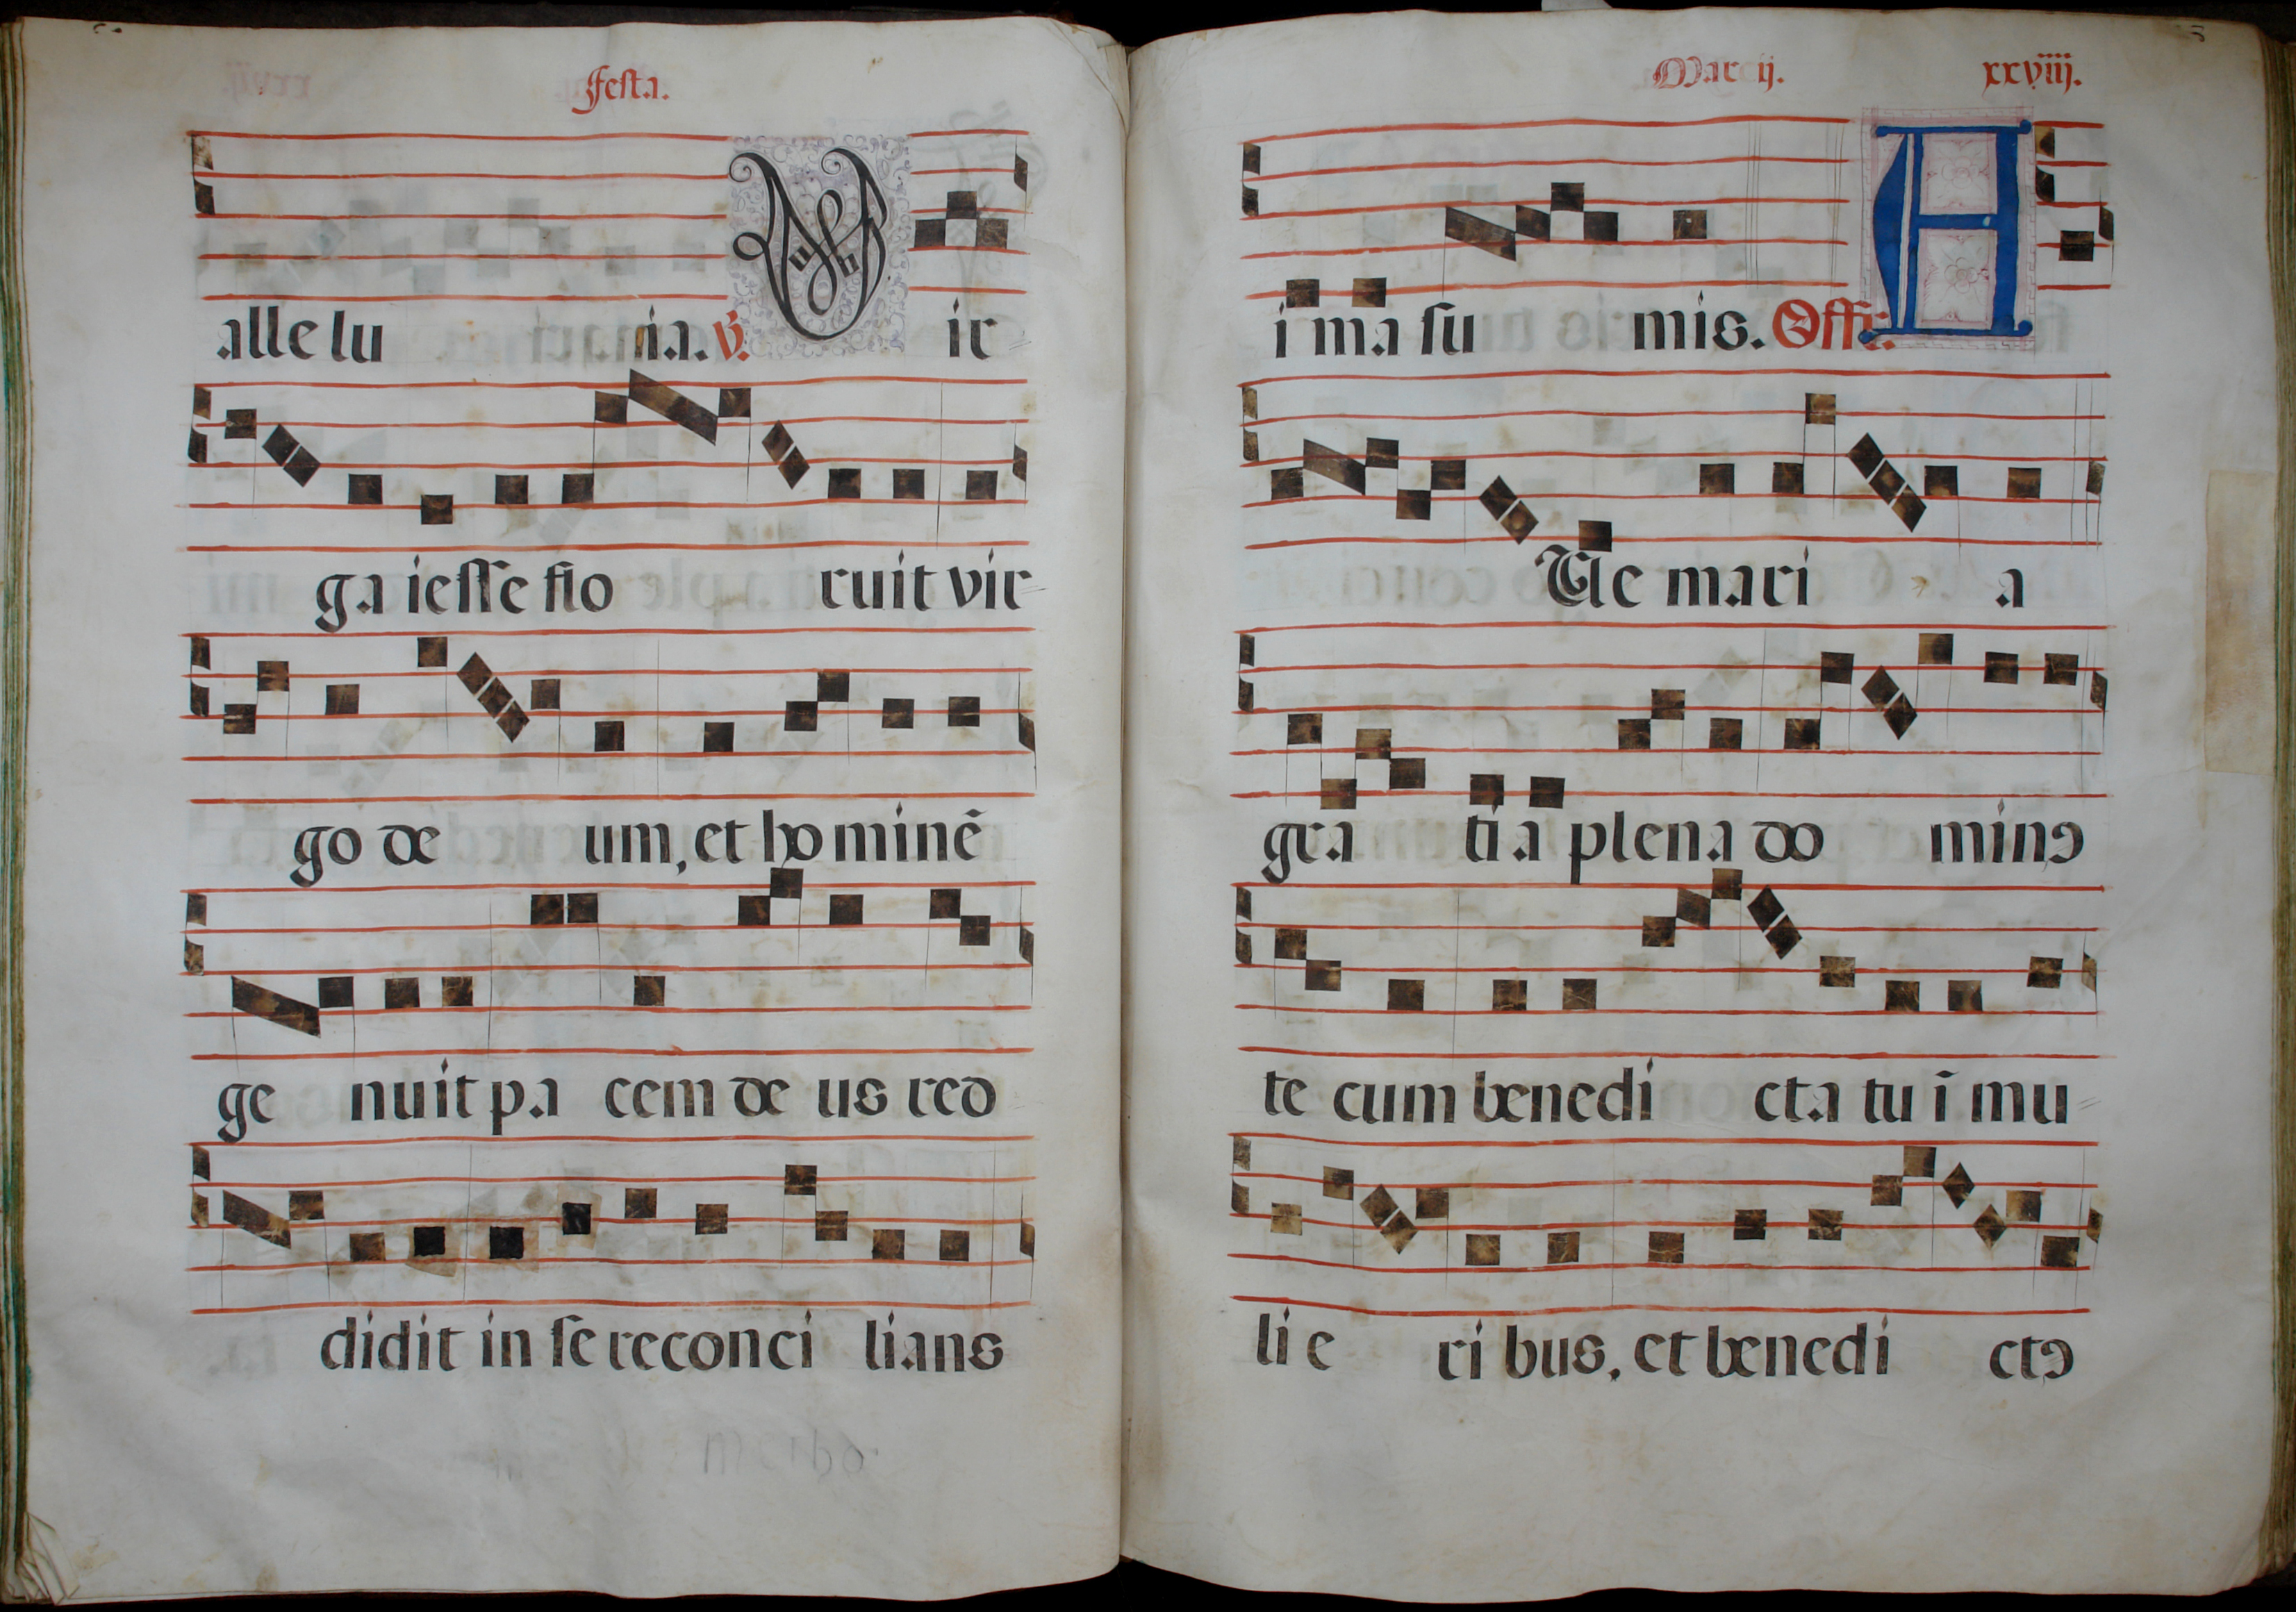 Festa.
alle lu ia. ℣. V ir
ga iesse flo ruit vir
go de um, et ho minẽ
ge nuit pa cem de us red
didit in se reconci lians
Marcij. xxviiij.
i ma su mis. Offr. A
Ue mari a
gra ti a plena do minꝯ
te cum benedi cta tu ĩ mu
li e ri bus, et benedi ctꝯ